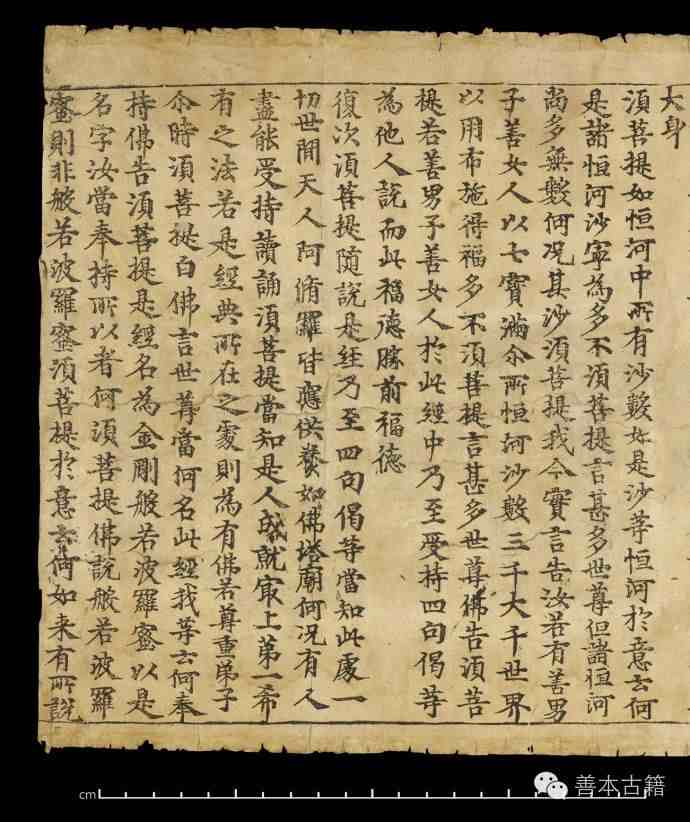 大身
須菩提如恒河中所有沙數如是沙等恒河於意云何
是諸恒河沙寧為多不須菩提言甚多世尊但諸恒河
尚多無數何況其沙須菩提我今實言告汝若有善男
子善女人以七寶滿尒所恒河沙數三千大千世界
以用布施得福多不須菩提言甚多世尊佛告須菩
提若善男子善女人於此經中乃至受持四句偈等
為他人說而此福德勝前福德
復次須菩提隨說是經乃至四句偈等當知此處一
切世間天人阿脩羅皆應供養如佛塔廟何況有人
盡能受持讀誦須菩提當知是人成就冣上第一希
有之法若是經典所在之處則為有佛若尊重弟子
尒時須菩提白佛言世尊當何名此經我等云何奉
持佛告須菩提是經名為金剛般若波羅蜜以是
名字汝當奉持所以者何須菩提佛說般若波羅
蜜則非般若波羅蜜須菩提於意云何如来有所說
cm
善本古籍